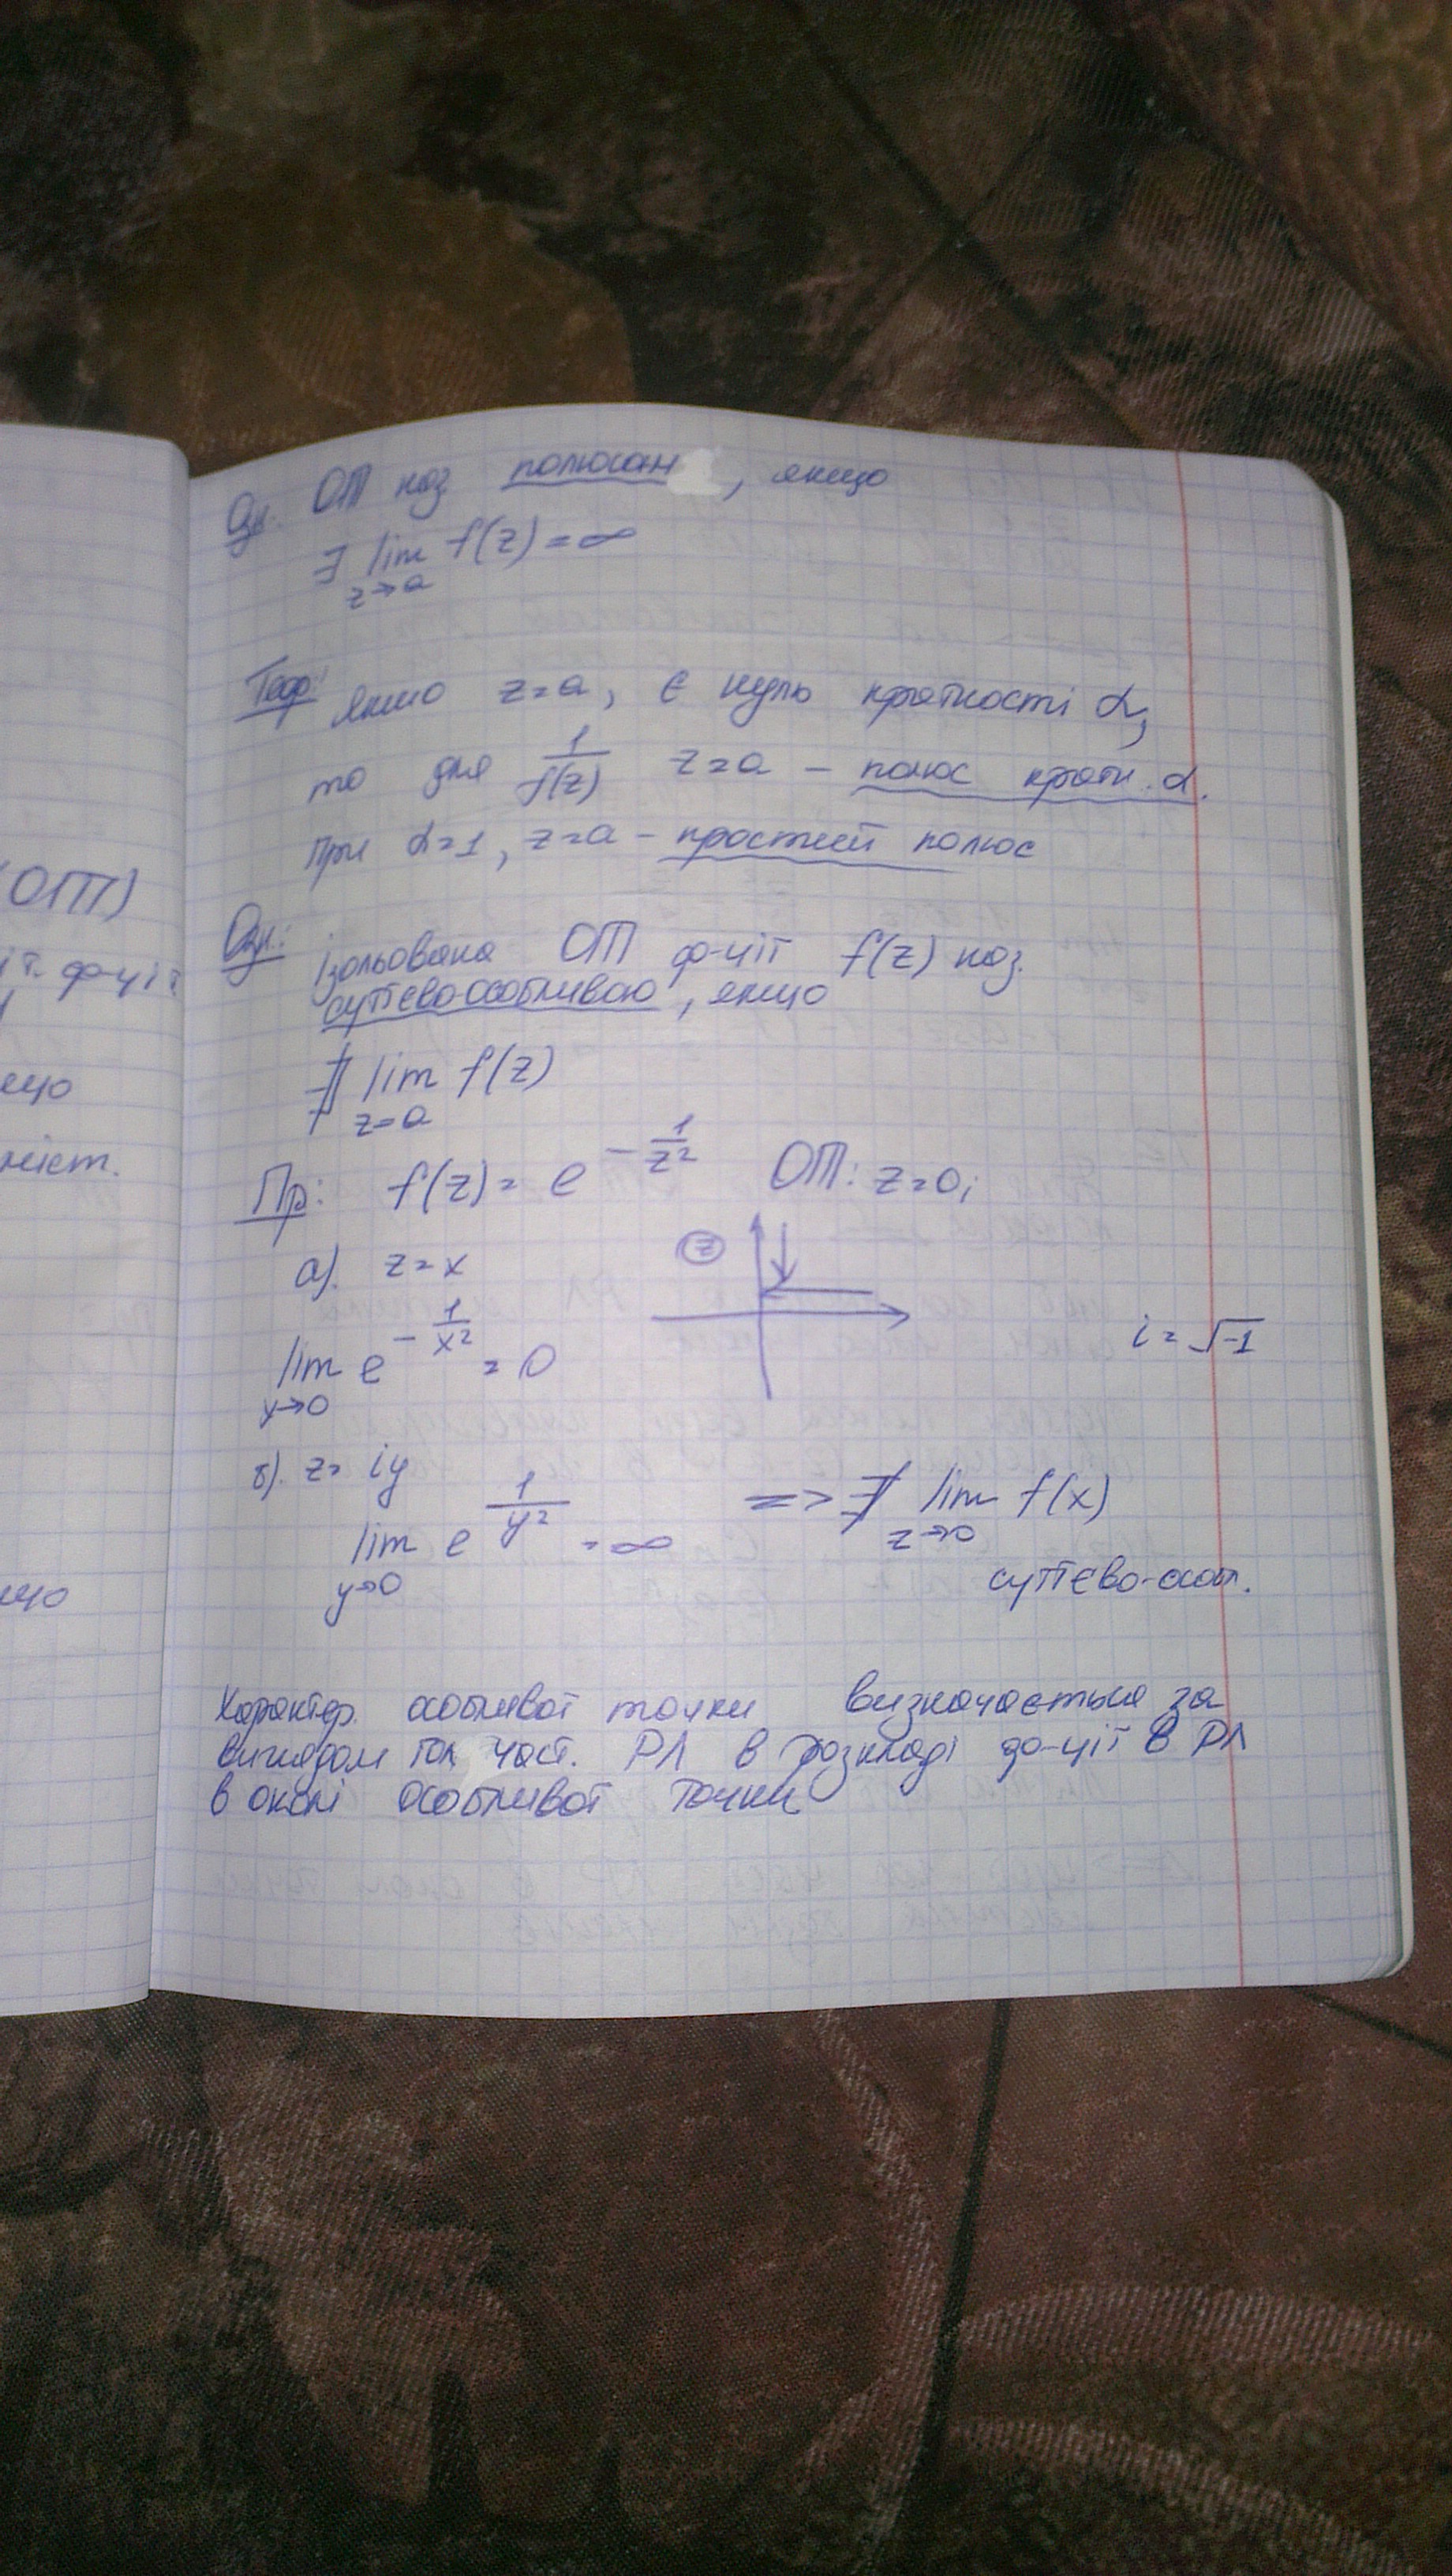 (ОТ)
іт. ф-ції
Озн. ОТ наз полюсом, якщо
∃ lim f(z)=∞
z→a
Теор: якщо z=a, є нуль кратності α,
то для 1/f(z) z=a – полюс кратн. α.
При α=1, z=a – простий полюс
Озн.: ізольована ОТ ф-ції f(z) наз.
суттєво-особливою, якщо
∄ lim f(z)
z=a
Пр: f(z)= e^(-1/z²) ОТ: z=0;
а). z=x
z
lim e^(-1/x²) = 0
x→0
i=√-1
б). z= iy
lim e^(1/y²) =∞
y→0
=> ∄ lim f(x)
z→0
суттєво-особл.
Характер. особливої точки визначається за
виглядом гол част. РЛ в розкладі ф-ції в РЛ
в околі особливої точки